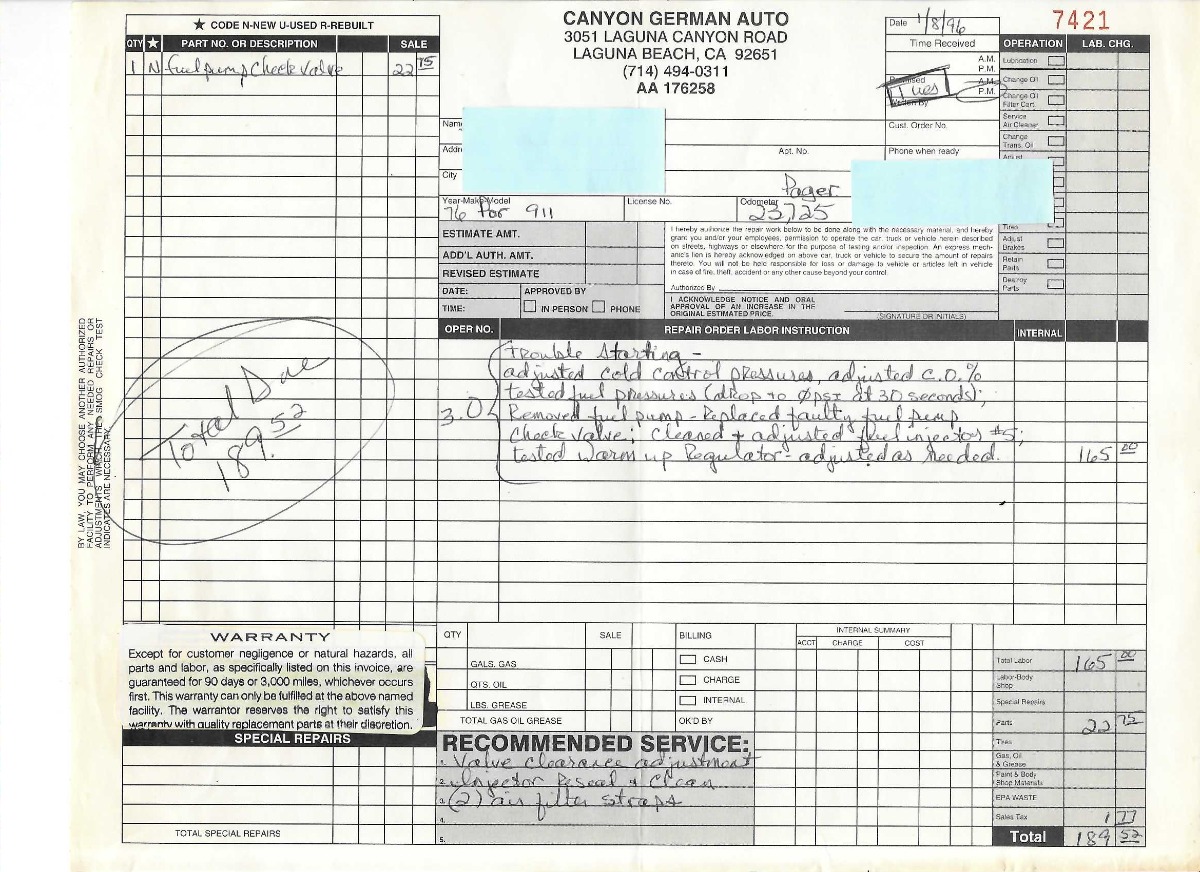 ★ CODE N-NEW U-USED R-REBUILT
QTY ★ PART NO. OR DESCRIPTION SALE
1 N fuel pump Check Valve 22 75
CANYON GERMAN AUTO
3051 LAGUNA CANYON ROAD
LAGUNA BEACH, CA 92651
(714) 494-0311
AA 176258
Date 1/8/96
Time Received
A.M.
P.M.
Promised Tues A.M.
P.M.
Written By
Cust. Order No.
Phone when ready
7421
OPERATION LAB. CHG.
Lubrication
Change Oil
Change Oil
Filter Cart.
Service
Air Cleaner
Change
Trans. Oil
Adjust
Tires
Adjust
Brakes
Retain
Parts
Destroy
Parts
Name
Addr
Apt. No.
City
Pager
Year-Make-Model
76 Por 911
License No.
Odometer
23,725
ESTIMATE AMT.
ADD'L AUTH. AMT.
REVISED ESTIMATE
DATE: APPROVED BY
TIME: IN PERSON PHONE
I hereby authorize the repair work below to be done along with the necessary material, and hereby
grant you and/or your employees, permission to operate the car, truck or vehicle herein described
on streets, highways or elsewhere for the purpose of testing and/or inspection. An express mech-
anic's lien is hereby acknowledged on above car, truck or vehicle to secure the amount of repairs
thereto. You will not be held responsible for loss or damage to vehicle or articles left in vehicle
in case of fire, theft, accident or any other cause beyond your control.
Authorized By
I ACKNOWLEDGE NOTICE AND ORAL
APPROVAL OF AN INCREASE IN THE
ORIGINAL ESTIMATED PRICE.
(SIGNATURE OR INITIALS)
OPER NO. REPAIR ORDER LABOR INSTRUCTION INTERNAL
Trouble Starting -
adjusted cold control pressures, adjusted C.O.%
tested fuel pressures (drop to 0psi at 30 seconds);
3.0 Removed fuel pump - Replaced faulty fuel pump
Check Valve; Cleaned + adjusted fuel injector #5;
tested warm up Regulator - adjusted as needed. 165 00
Total Due
189.52
BY LAW, YOU MAY CHOOSE ANOTHER AUTHORIZED
FACILITY TO PERFORM ANY NEEDED REPAIRS OR
ADJUSTMENTS WHICH THE SMOG CHECK TEST
INDICATES ARE NECESSARY.
WARRANTY
Except for customer negligence or natural hazards, all
parts and labor, as specifically listed on this invoice, are
guaranteed for 90 days or 3,000 miles, whichever occurs
first. This warranty can only be fulfilled at the above named
facility. The warrantor reserves the right to satisfy this
warranty with quality replacement parts at their discretion.
SPECIAL REPAIRS
TOTAL SPECIAL REPAIRS
QTY SALE
GALS. GAS
QTS. OIL
LBS. GREASE
TOTAL GAS OIL GREASE
BILLING
CASH
CHARGE
INTERNAL
OK'D BY
INTERNAL SUMMARY
ACCT CHARGE COST
RECOMMENDED SERVICE:
1. Valve clearance adjustment
2. Injector Reseal + Clean
3. (2) air filter straps
4.
5.
Total Labor 165 00
Labor-Body
Shop
Special Repairs
Parts 22 75
Tires
Gas, Oil
& Grease
Paint & Body
Shop Materials
EPA WASTE
Sales Tax 1 77
Total 189 52